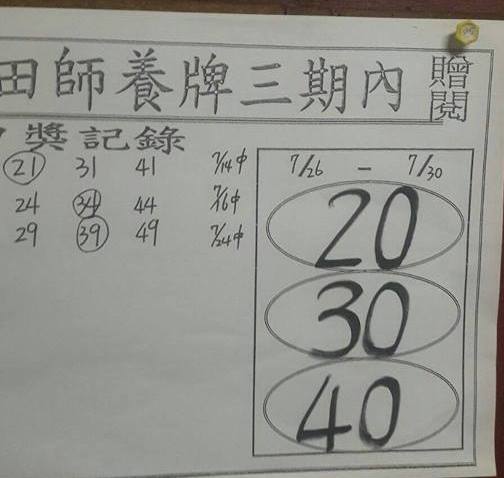 田師養牌三期內
贈閱
獎記錄
21 31 41 7/14中
24 34 44 7/16中
29 39 49 7/24中
7/26 - 7/30
20
30
40